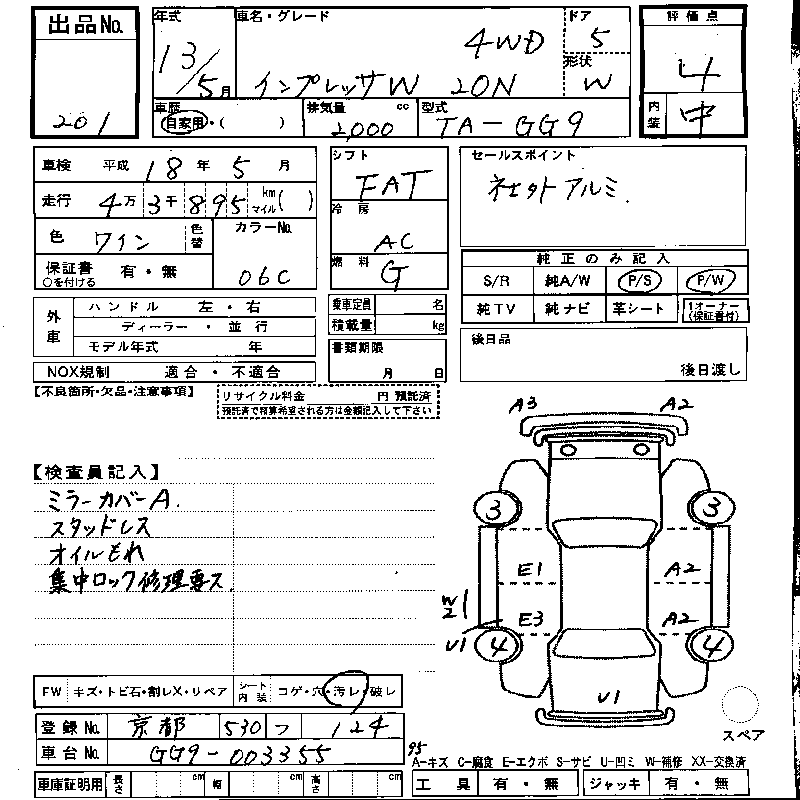 出品No.
201
年式
13/5月
車名・グレード
4WD
インプレッサW 20N
ドア
5
形状
W
評価点
4
内装
中
車歴
自家用・( )
排気量 cc
2,000
型式
TA-GG9
車検 平成 18年 5月
走行 4万 3千 895 km マイル ( )
色 ワイン 色替
カラーNo.
06C
保証書 有・無
○を付ける
シフト
FAT
冷房
AC
燃料
G
セールスポイント
社セットアルミ.
純正のみ記入
S/R 純A/W P/S P/W
純TV 純ナビ 革シート 1オーナー(保証書付)
外車
ハンドル 左・右
ディーラー・並行
モデル年式 年
NOX規制 適合・不適合
乗車定員 名
積載量 kg
書類期限
月 日
後日品
後日渡し
【不良箇所・欠品・注意事項】
リサイクル料金 円 預託済
預託済で精算希望される方は金額記入して下さい
【検査員記入】
ミラーカバーA.
スタッドレス
オイルもれ
集中ロック修理要ス
A3 A2
3 3
E1 A2
W2
E3 A2
U1 4 4
U1
スペア
FW キズ・トビ石・割レX・リペア シート内装 コゲ・穴・汚レ・破レ
登録No. 京都 530 つ 124
車台No. GG9-003355
95
A-キズ C-腐食 E-エクボ S-サビ U-凹ミ W-補修 XX-交換済
車庫証明用 長さ cm 幅 cm 高さ cm
工具 有・無 ジャッキ 有・無